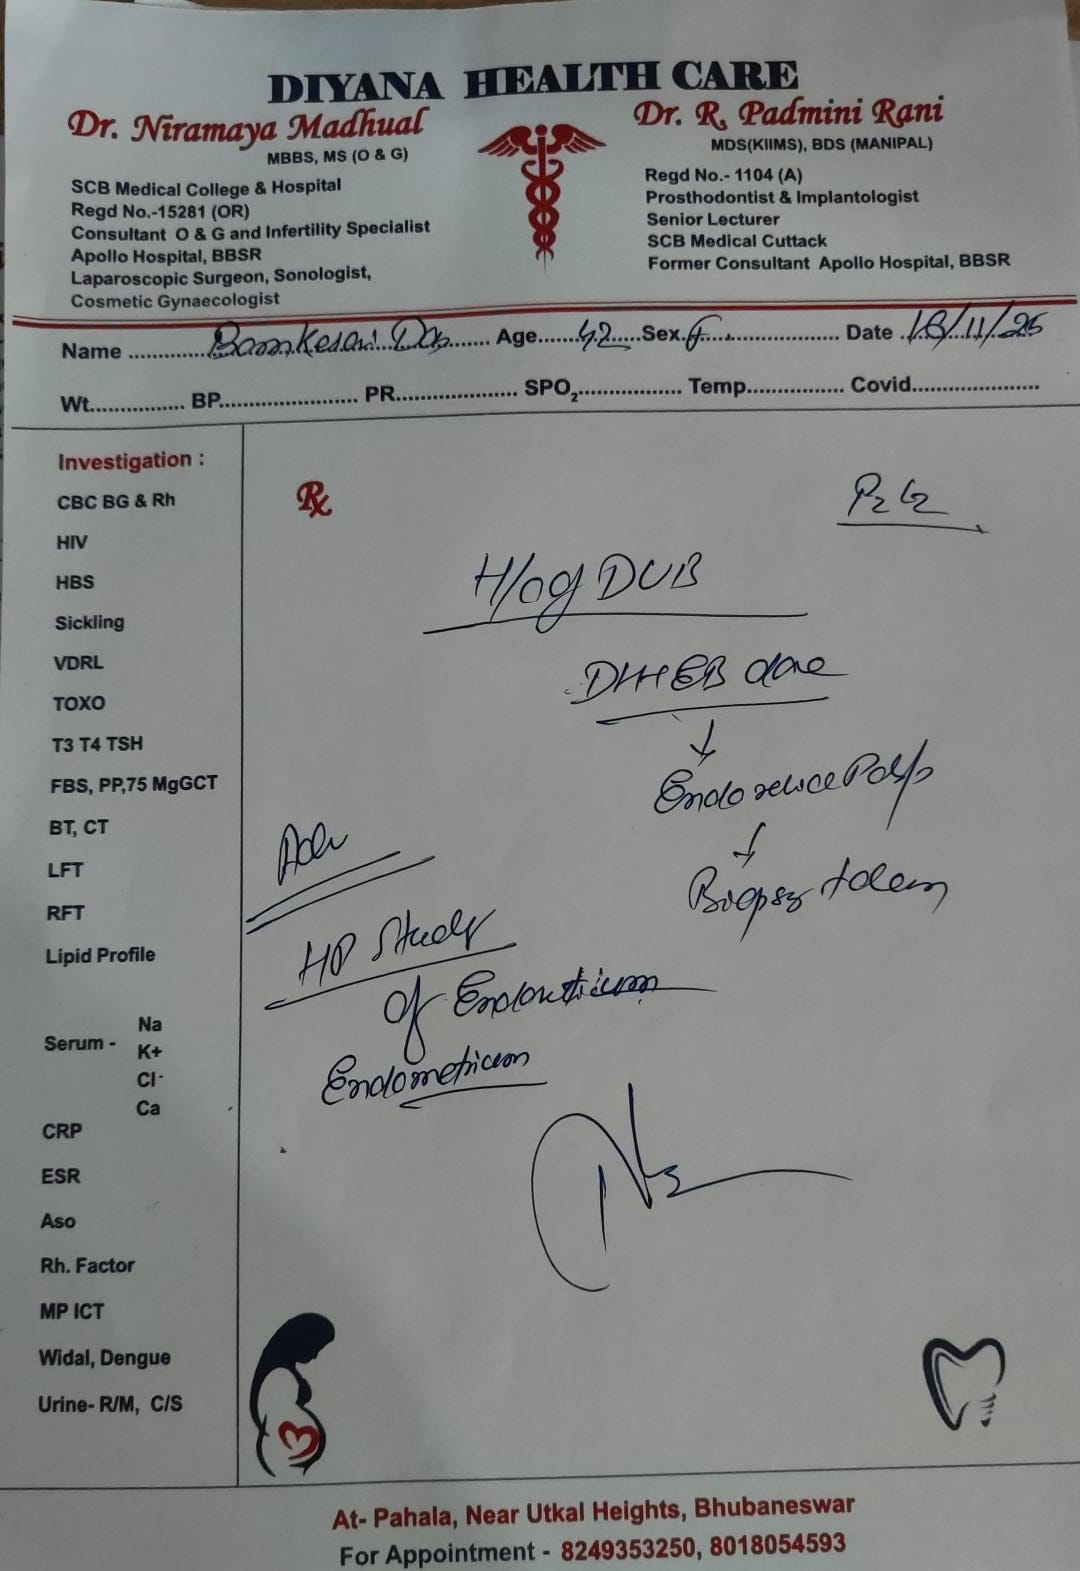 DIYANA HEALTH CARE
Dr. Niramaya Madhual
MBBS, MS (O & G)
SCB Medical College & Hospital
Regd No.-15281 (OR)
Consultant O & G and Infertility Specialist
Apollo Hospital, BBSR
Laparoscopic Surgeon, Sonologist,
Cosmetic Gynaecologist
Dr. R. Padmini Rani
MDS(KIIMS), BDS (MANIPAL)
Regd No.- 1104 (A)
Prosthodontist & Implantologist
Senior Lecturer
SCB Medical Cuttack
Former Consultant Apollo Hospital, BBSR
Name ............. Das ....... Age.......42.....Sex.f.................... Date .18/11/25
Wt................ BP....................... PR.................... SPO2................. Temp................ Covid.....................
Investigation :
CBC BG & Rh
HIV
HBS
Sickling
VDRL
TOXO
T3 T4 TSH
FBS, PP,75 MgGCT
BT, CT
LFT
RFT
Lipid Profile
Serum - Na
K+
Cl-
Ca
CRP
ESR
Aso
Rh. Factor
MP ICT
Widal, Dengue
Urine- R/M, C/S
Rx
P2 L2
H/o of DUB
done
↓
↓
Biopsy taken
Adv
HP Study
of
Endometrium
At- Pahala, Near Utkal Heights, Bhubaneswar
For Appointment - 8249353250, 8018054593